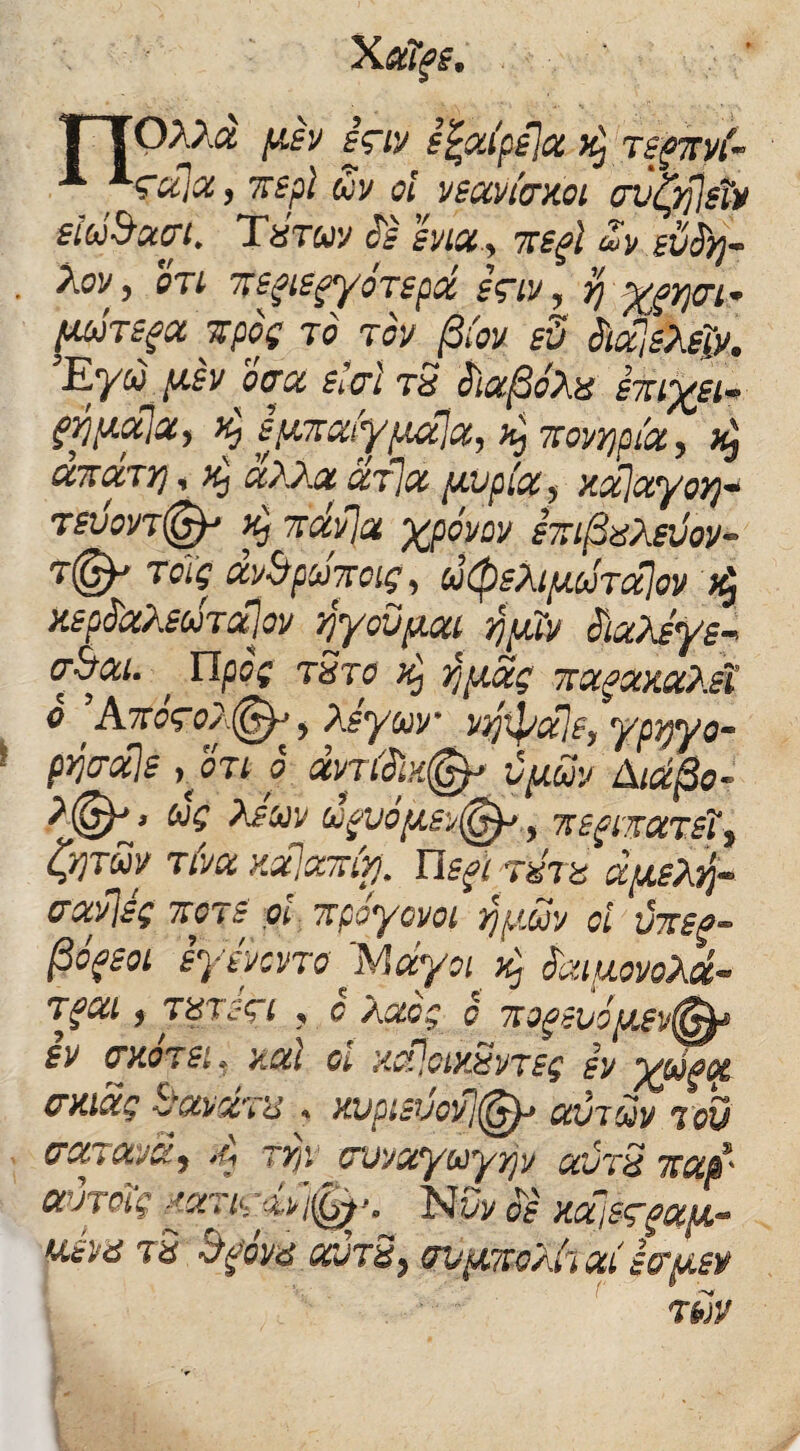 Χαῖρε.
ΠΟλλὰ μὲν ἐϛιν ἐξαίρεlα ϗ τερπνί-
ϛαlα, περὶ ὧν οἱ νεανίσκοι συζηlεῖν
εἰώθασι. Τȣ́των δὲ ἔνια, περὶ ὧν εὔδη-
λον, ὅτι περιεργότερά ἐϛιν, ἢ χρησι-
μώτερα πρὸς τὸ τὸν βίον εὖ διαlελεῖν.
Ἐγὼ μὲν ὅσα εἰσὶ τȣ͂ διαβόλȣ ἐπιχει-
ρήμαlα, ϗ ἐμπαίγμαlα, ϗ πονηρία, ϗ
ἀπάτη, ϗ ἄλλα ἄτlα μυρία, καlαγοη-
τεύοντος ϗ πάνlα χρόνον ἐπιβȣλεύον-
τος τοῖς ἀνθρώποις, ὠφελιμώταlον ϗ
κερδαλεώταlον ἡγοῦμαι ἡμῖν διαλέγε-
σθαι. Πρὸς τȣ͂το ϗ ἡμᾶς παρακαλεῖ
ὁ Ἀπόϛολος, λέγων· νήψαlε, γρηγο-
ρήσαlε, ὅτι ὁ ἀντίδικος ὑμῶν Διάβο-
λος, ὡς λέων ὠρυόμενος, περιπατεῖ,
ζητῶν τίνα καlαπίῃ. Περὶ τȣ́τȣ ἀμελή-
σανlές ποτε οἱ πρόγονοι ἡμῶν οἱ ὑπερ-
βόρεοι ἐγένοντο Μάγοι ϗ δαιμονολά-
τραι, τȣτέϛι, ὁ λαὸς ὁ πορευόμενος
ἐν σκότει, καὶ οἱ καlοικȣ͂ντες ἐν χώρᾳ
σκιᾶς θανάτȣ, κυριεύονlος αὐτῶν τοῦ
σατανᾶ, ϗ τὴν συναγωγὴν αὐτȣ͂ παρ'
αὐτοῖς κατιϛάνlος. Νῦν δὲ καlεϛραμ-
μένȣ τȣ͂ θρόνȣ αὐτȣ͂, συμπολῖται ἐσμεν
τῶν